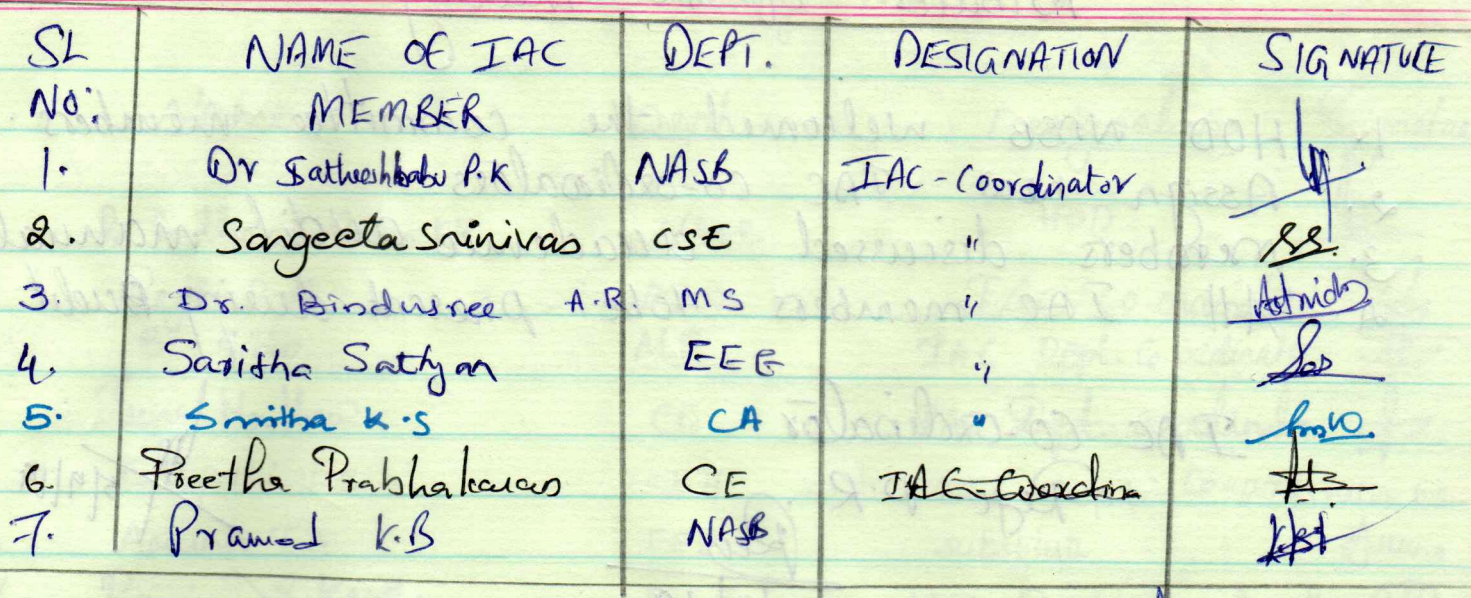 SL NAME OF IAC DEPT. DESIGNATION SIGNATURE
NO: MEMBER
1. Dr Satheeshbabu P.K NASB IAC-Coordinator
2. Sangeeta Srinivas CSE " SS.
3. Dr. Bindusree A.R. MS "
4. Saritha Sathyan EEE "
5. Smitha K.S CA "
6. Preetha Prabhakaran CE IAC-Coordina
7. Pramod K.B NASB